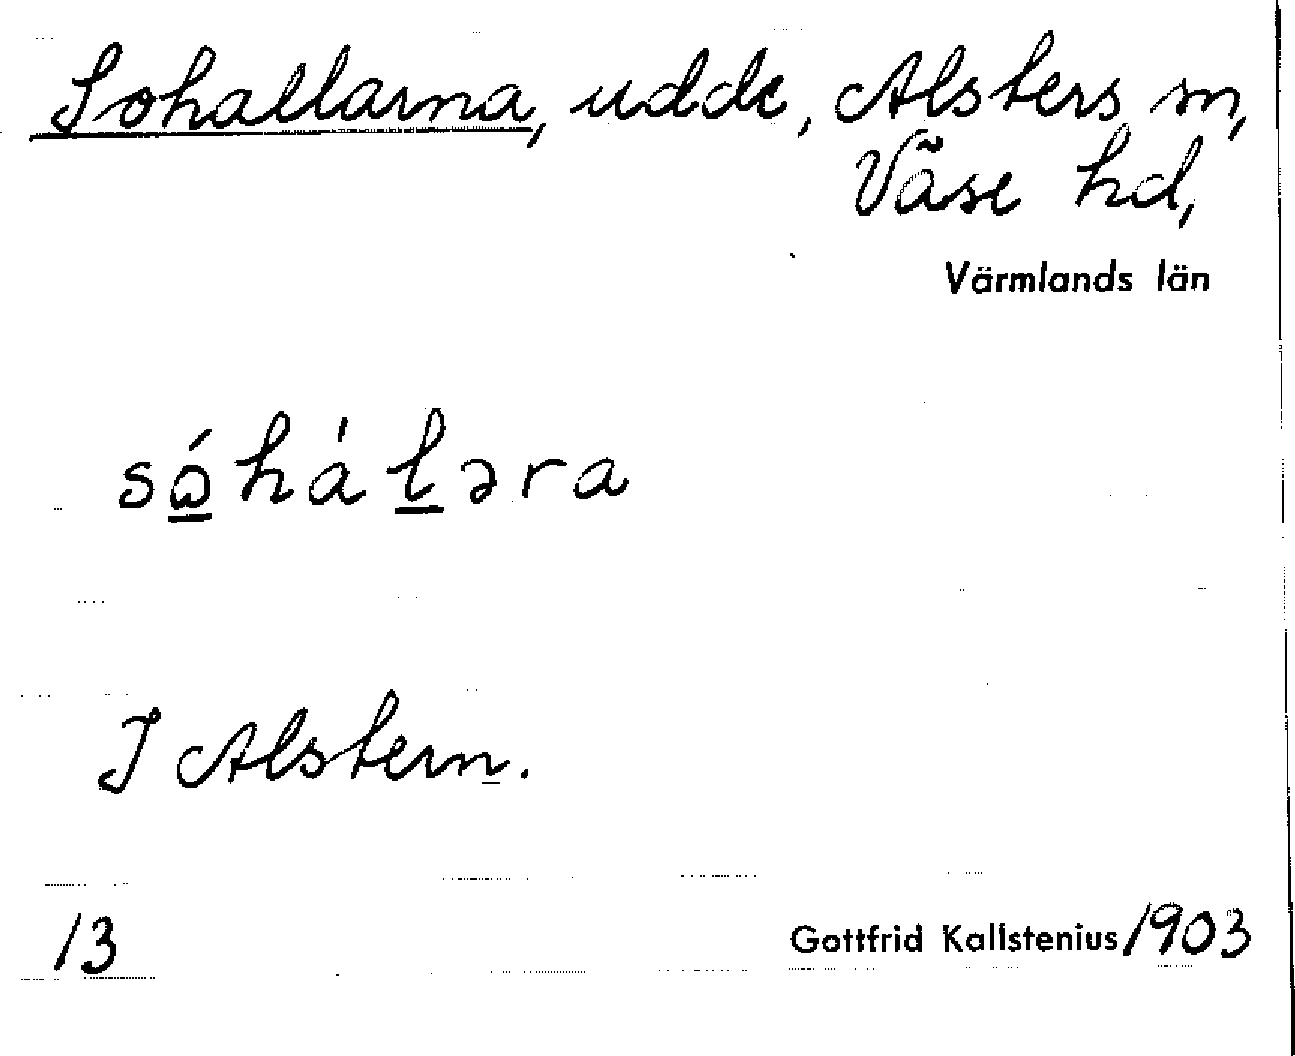 Sohallarna, udde, Alsters sn,
Väse hd,
Värmlands län
sɷ̲́hàl̲əra
I Alstern.
13
Gottfrid Kallstenius 1903